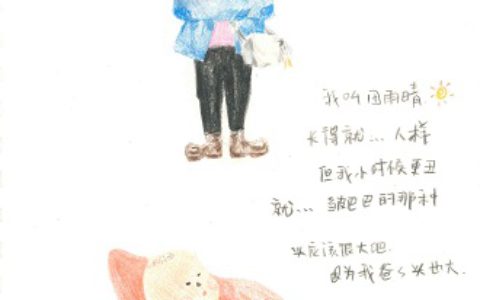 我叫田雨晴
长得就... 人样
但我小时候更丑
就... 皱巴巴的那种
头应该很大吧.
因为我爸爸头也大.